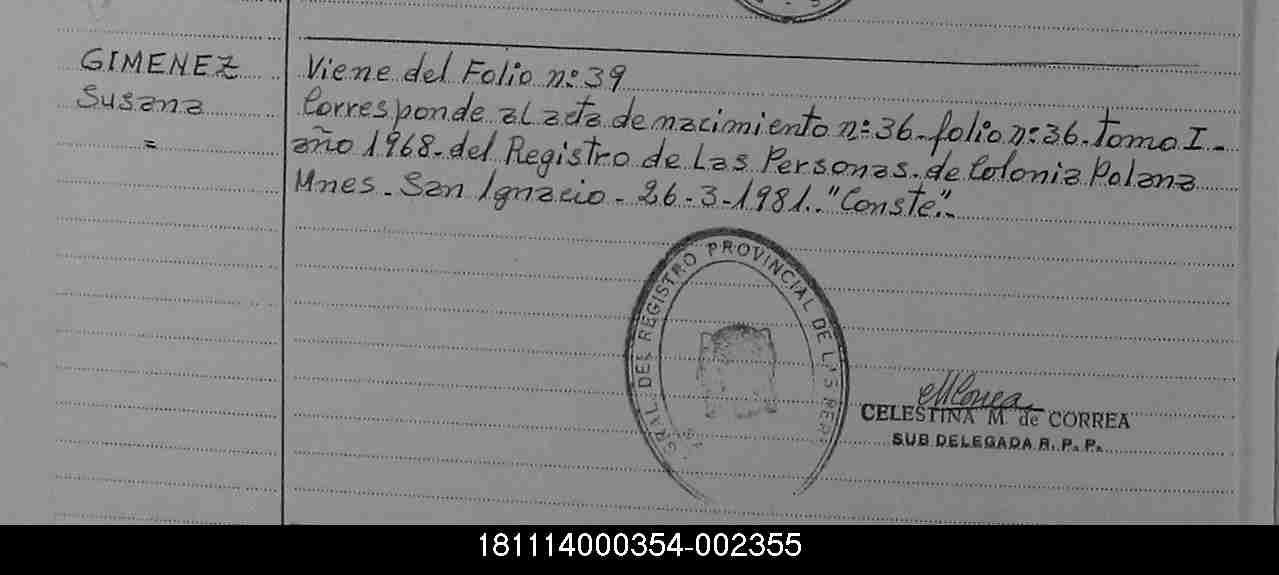 GIMENEZ
Susana
=
Viene del Folio nº 39
Corresponde al acta de nacimiento nº 36. folio nº 36. Tomo I -
año 1968. del Registro de Las Personas. de Colonia Polana
Mnes. San Ignacio - 26-3-1981. "Conste".-
GRAL. DEL REGISTRO PROVINCIAL DE LAS PER
CELESTINA M. de CORREA
SUB DELEGADA R. P. P.
181114000354-002355